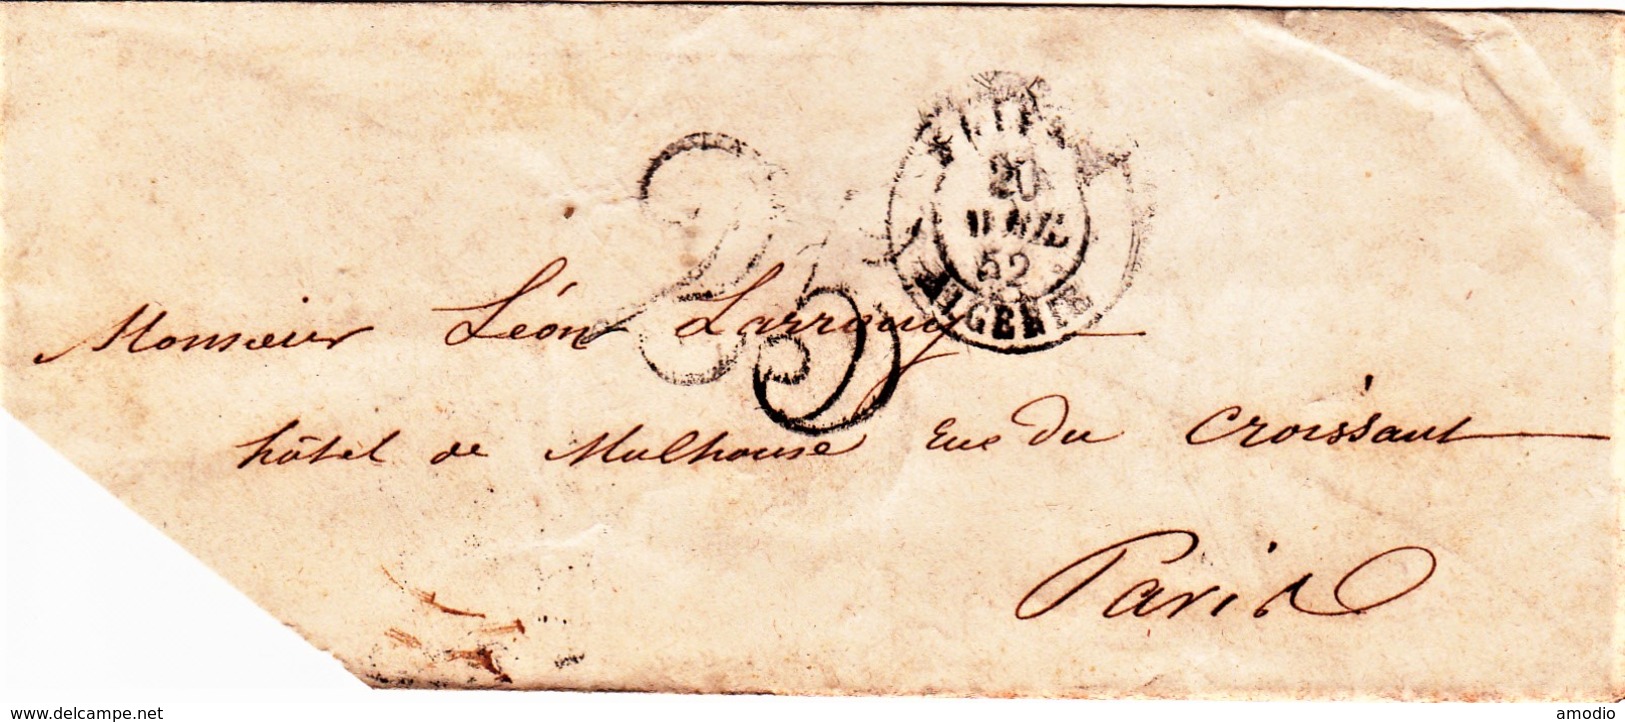 20
AVRIL
52
ALGERIE
25
Monsieur Léon Larrouy
hôtel de Mulhouse rue du Croissant
Paris
www.delcampe.net
amodio